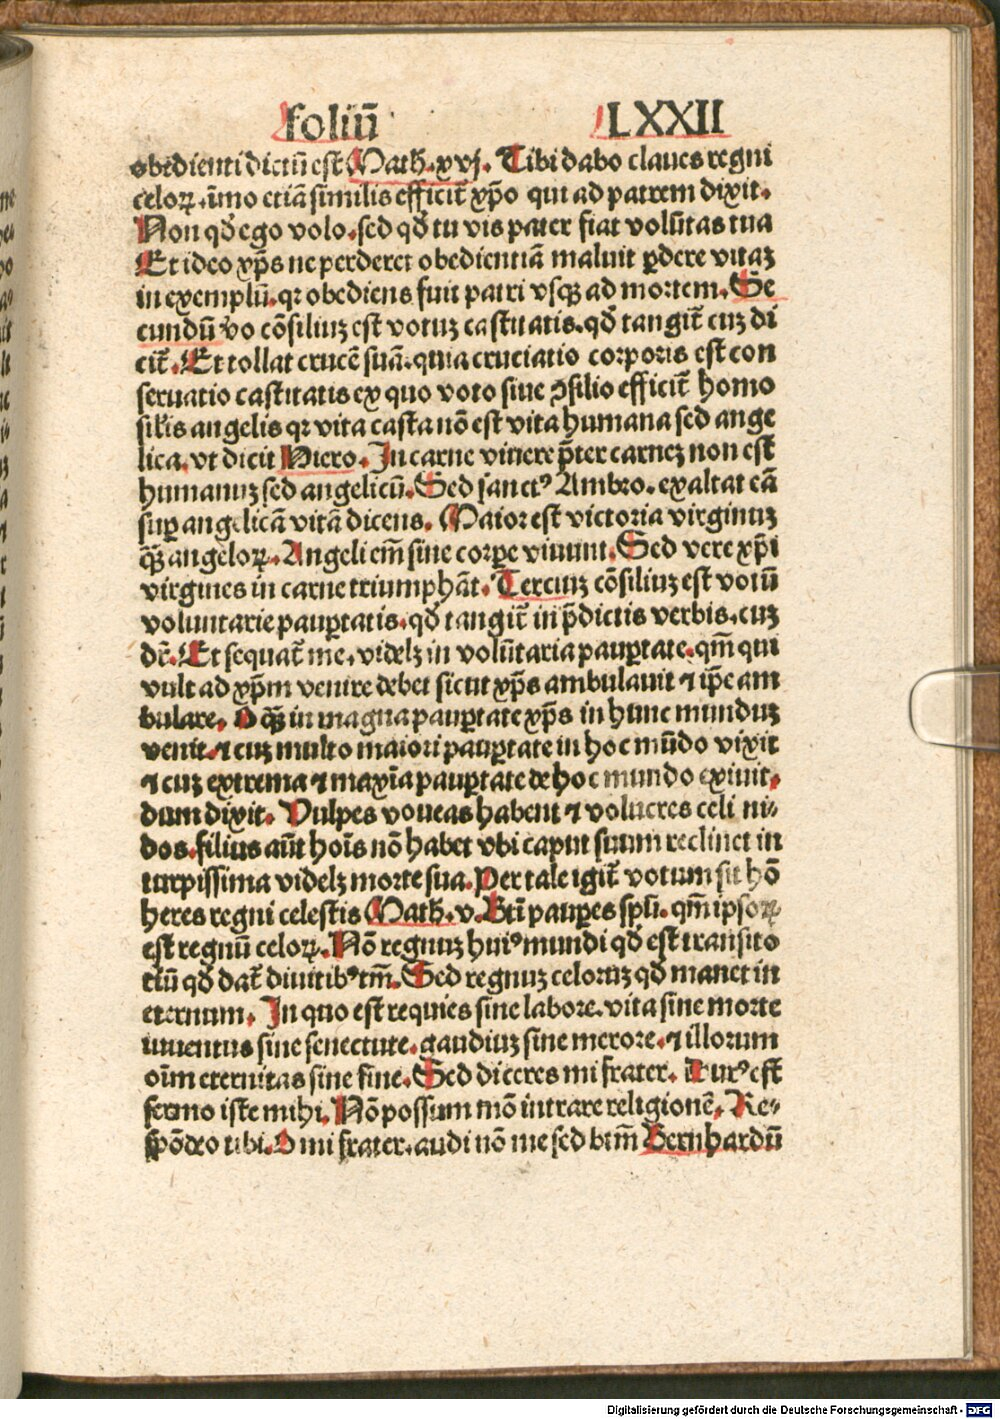 foliū LXXII
obedienti dictū est Math. xvj. Tibi dabo claues regni
celoꝝ. īmo etiā similis efficit᷑ xp̄o qui ad patrem dixit.
Non qđ ego volo. sed qđ tu vis pater fiat volūtas tua
Et ideo xp̄s ne perderet obedientiā maluit ꝑdere vitaꝫ
in exemplū. qꝛ obediens fuit patri vsqꝫ ad mortem. Se
cundū vo cōsiliuꝫ est votuꝫ castitatis. qđ tangit᷑ cuꝫ di
cit᷑. Et tollat crucē suā. quia cruciatio corporis est con
seruatio castitatis ex quo voto siue ꝯsilio efficit᷑ homo
sil̄is angelis qꝛ vita casta nō est vita humana sed ange
lica. vt dicit Hiero. In carne viuere p̄ter carneꝫ non est
humanuꝫ sed angelicū. Sed sanctꝰ Ambro. exaltat eā
suꝑ angelicā vitā dicens. Maior est victoria virginuꝫ
qꝫ̄ angeloꝝ. Angeli em̄ sine corꝑe viuunt. Sed vere xp̄i
virgines in carne triumphāt. Terciuꝫ cōsiliuꝫ est votū
voluntarie pauꝑtatis. qđ tangit᷑ in p̄dictis verbis. cuꝫ
dr̄. Et sequat᷑ me. videlꝫ in volūtaria pauꝑtate. qm̄ qui
vult ad xp̄m venire debet sicut xp̄s ambulauit ⁊ ip̄e am
bulare. O qꝫ̄ in magna pauꝑtate xp̄s in hunc munduꝫ
venit. ⁊ cuꝫ multo maiori pauꝑtate in hoc mūdo vixit
⁊ cuꝫ extrema ⁊ maxīa pauꝑtate de hoc mundo exiuit.
dum dixit. Vulpes voueas habent ⁊ volucres celi ni⸗
dos. filius aūt hoīs nō habet vbi caput suum reclinet in
turpissima videlꝫ morte sua. Per tale igit᷑ votum sit hō
heres regni celestis Math. v. Bti̅ pauꝑes spū. qm̄ ipsoꝝ
est regnū celoꝝ. Nō regnuꝫ huiꝰ mundi qđ est transito
riū qđ dat᷑ diuitibꝰ tm̄. Sed regnuꝫ celoruꝫ qđ manet in
eternum. In quo est requies sine labore. vita sine morte
iuuentus sine senectute. gaudiuꝫ sine merore. ⁊ illorum
oīm eternitas sine fine. Sed diceres mi frater. Durꝰ est
sermo iste mihi. Nō possum mō intrare religionē. Re⸗
spōdeo tibi. O mi frater. audi nō me sed btm̄ Bernhardū
Digitalisierung gefördert durch die Deutsche Forschungsgemeinschaft - DFG